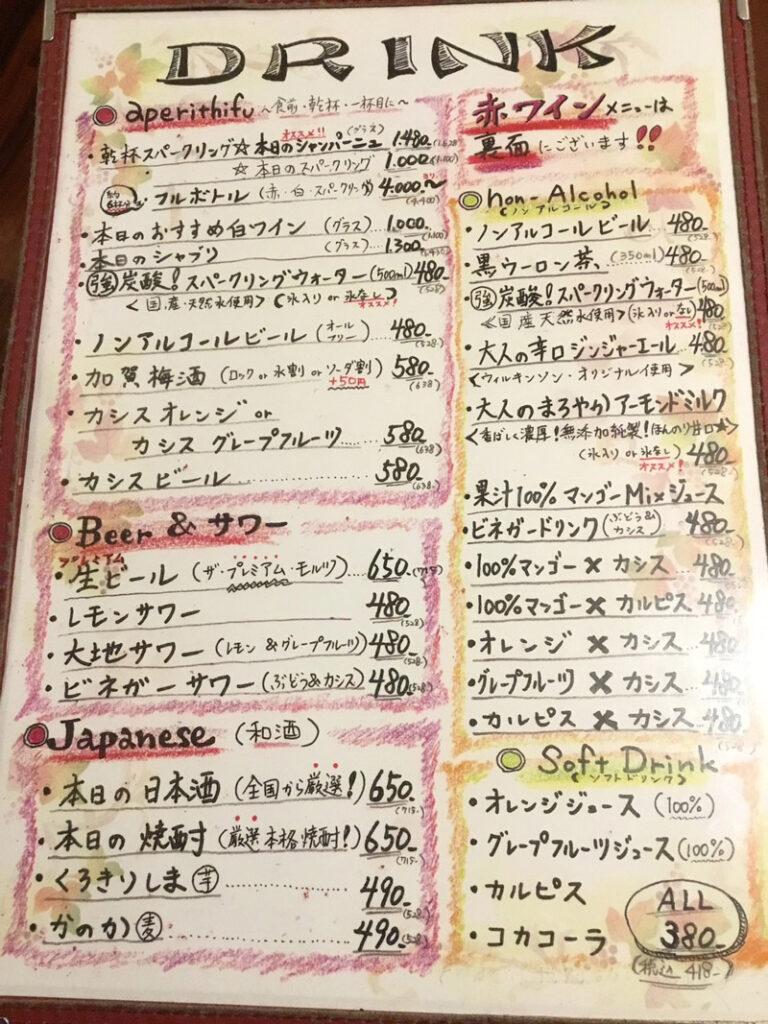 DRINK
aperithifu 〜食前・乾杯・一杯目に〜
オススメ!! (グラス)
・乾杯スパークリング☆本日のシャンパーニュ 1.480-
☆本日のスパークリング 1.000- (1.100)
約6杯分 フルボトル (赤・白・スパークリング) 4.000-〜 (4.400)
・本日のおすすめ白ワイン (グラス) 1.000- (1.100)
・本日のシャブリ (グラス) 1.300-
・強炭酸!スパークリングウォーター(500ml) 480- (528)
<国産・天然水使用> (氷入り or 氷なし)
オススメ!
・ノンアルコールビール (オールフリー) 480- (528-)
・加賀梅酒 (ロック or 水割 or ソーダ割) 580- (638)
+50円
・カシスオレンジ or
カシスグレープフルーツ 580- (638)
・カシスビール 580- (638-)
Beer & サワー
プレミアム
・生ビール (ザ・プレミアム・モルツ) 650- (715)
・レモンサワー 480- (528-)
・大地サワー (レモン&グレープフルーツ) 480- (528-)
・ビネガーサワー (ぶどう&カシス) 480- (528-)
Japanese (和酒)
・本日の日本酒 (全国から厳選!) 650- (715-)
・本日の焼酎 (厳選本格焼酎!) 650- (715-)
・くろきりしま 芋 490- (528-)
・かのか 麦 490- (528-)
赤ワインメニューは
裏面にございます!!
non-Alcohol
(ノンアルコール)
・ノンアルコールビール 480- (528-)
・黒ウーロン茶 (350ml) 480- (528-)
・強炭酸!スパークリングウォーター(500ml)
<国産天然水使用> (氷入り or なし) 480- (528)
オススメ!
・大人の辛口ジンジャーエール 480- (528-)
<ウィルキンソン・オリジナル使用>
・大人のまろやかアーモンドミルク
<香ばしく濃厚!無添加純製!ほんのり甘口☆>
(氷入り or 氷なし) 480- (528-)
オススメ!
・果汁100%マンゴーMixジュース
・ビネガードリンク (ぶどう&カシス) 480- (528-)
・100%マンゴー×カシス 480-
・100%マンゴー×カルピス 480-
・オレンジ×カシス 480-
・グレープフルーツ×カシス 480-
・カルピス×カシス 480-
Soft Drink
(ソフトドリンク)
・オレンジジュース (100%)
・グレープフルーツジュース (100%)
・カルピス
・コカコーラ
ALL
380-
(税込 418-)